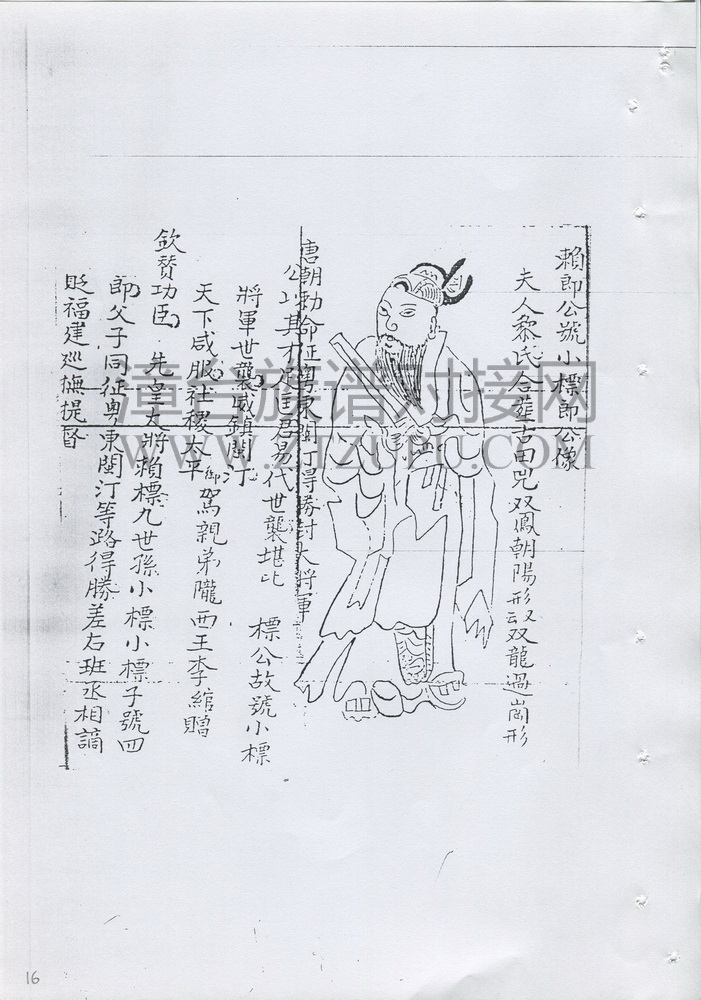 賴郎公號小標郎公像
夫人黎氏合葬古田児双鳳朝陽形又云双龍過崗形
唐朝勅命征粤東閩汀得勝封大將軍
公以其才足匡君易代世襲堪比 標公故號小標
將軍世襲威鎮閩汀
天下咸服社稷太平御駕親弟隴西王李綰贈
欽贊功臣 先皇大將賴標九世孫小標小標子號四
郎父子同征粤東閩汀等路得勝差右班丞相謫
貶福建巡撫提督
漳台族谱对接网
WWW.ZTZUPU.COM
16